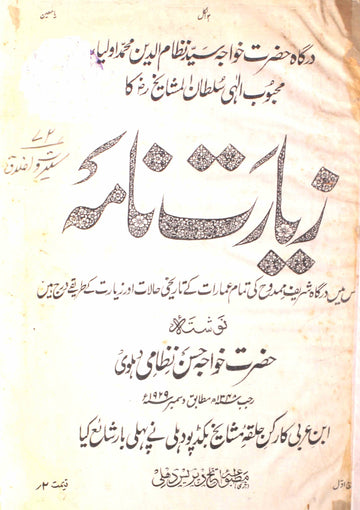 درگاہ حضرت خواجہ سید نظام الدین محمد اولیاء
محبوب الٰہی سلطان المشایخ رضؓ کا
زیارت نامہ
جس میں درگاہ شریف ممدوح کی تمام عمارات کے تاریخی حالات اور زیارت کے طریقے درج ہیں
نوشتہ
حضرت خواجہ حسن نظامی دہلوی
رجب ۱۳۴۸ھ مطابق دسمبر ۱۹۲۹ء
ابن عربی کارکن حلقہ مشایخ بکڈپو دہلی نے پہلی بار شائع کیا
قیمت ۲؍